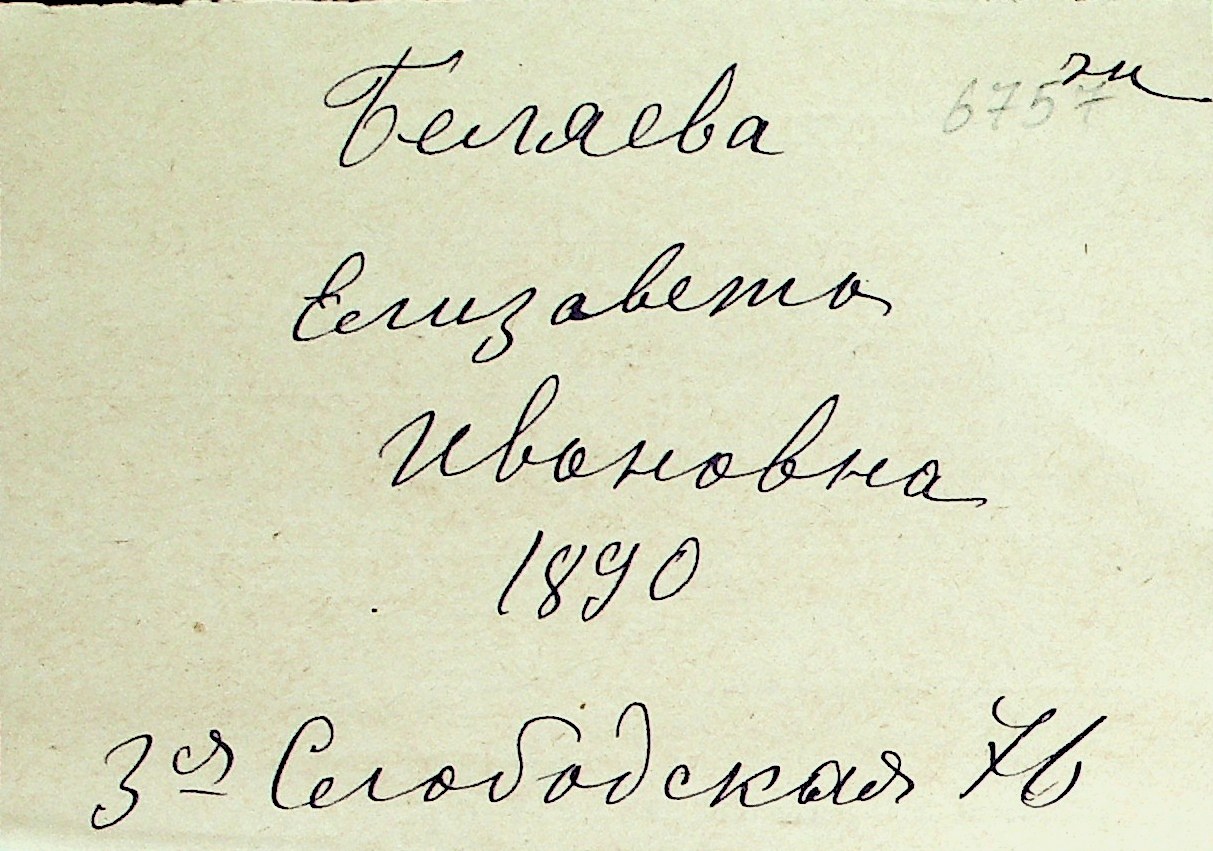 Беляева 6757
Елизавета
Ивановна
1890
3ая Слободская 76